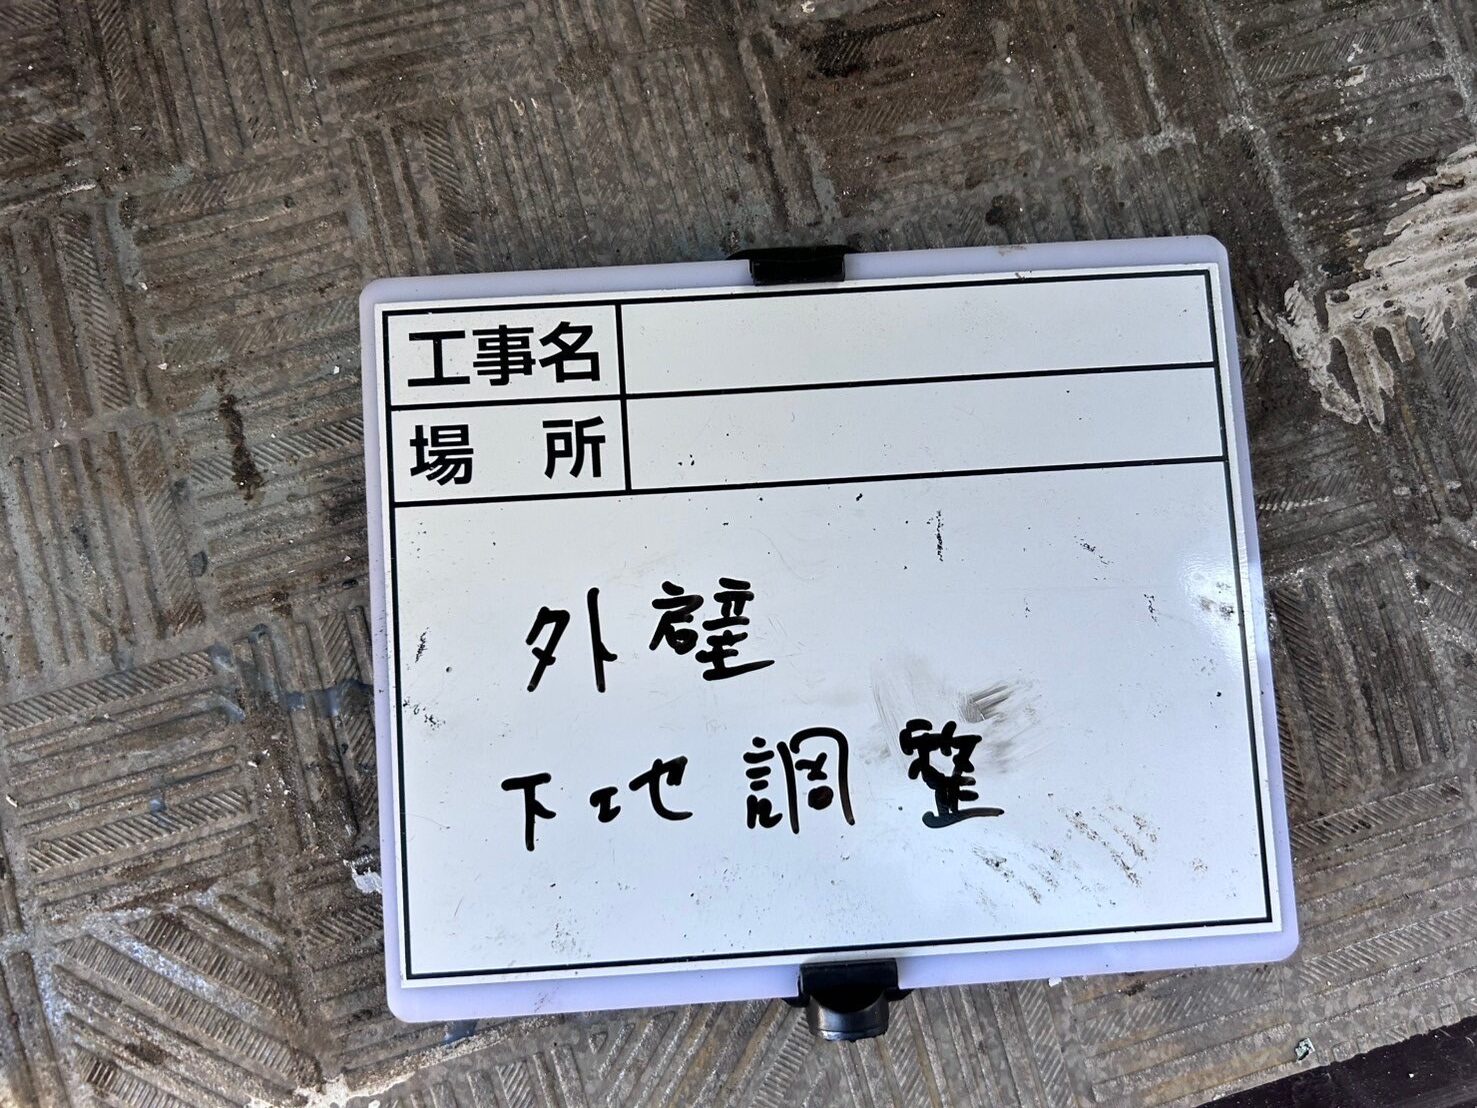 工事名
場所
外壁
下地調整